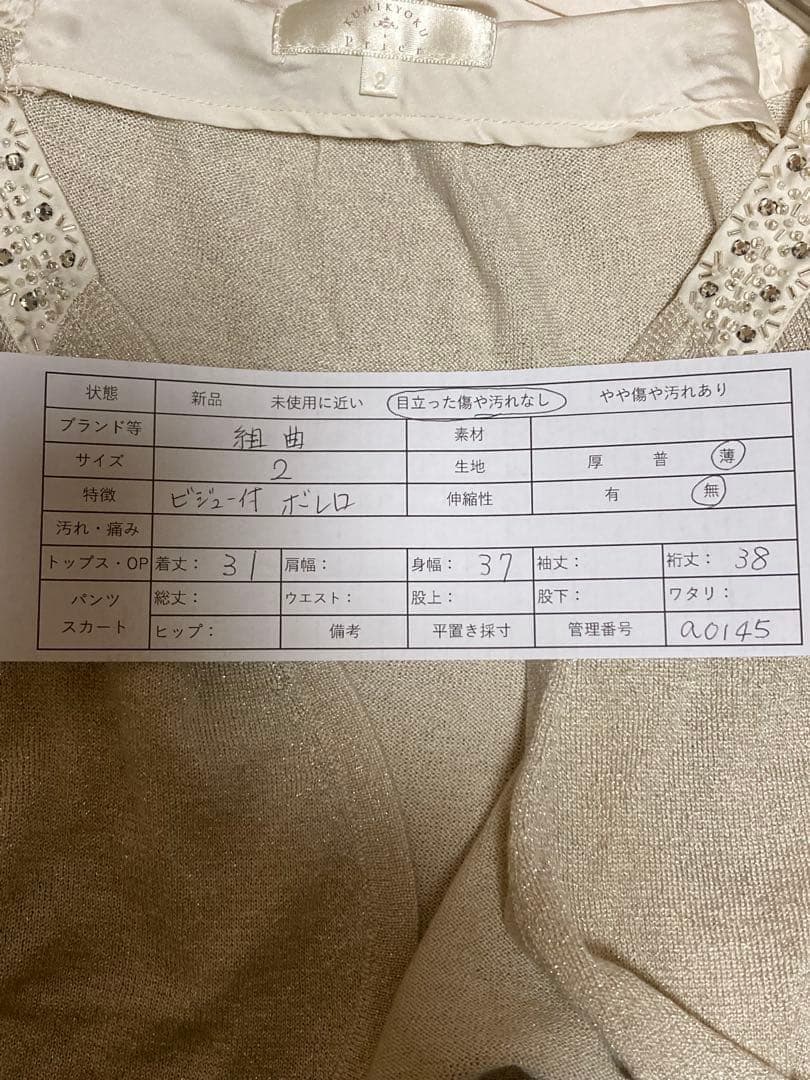 KUMIKYOKU
prier
2
状態 新品 未使用に近い 目立った傷や汚れなし やや傷や汚れあり
ブランド等 組曲 素材
サイズ 2 生地 厚 普 薄
特徴 ビジュー付 ボレロ 伸縮性 有 無
汚れ・痛み
トップス・OP 着丈: 31 肩幅: 身幅: 37 袖丈: 裄丈: 38
パンツ 総丈: ウエスト: 股上: 股下: ワタリ:
スカート ヒップ: 備考 平置き採寸 管理番号 a0145